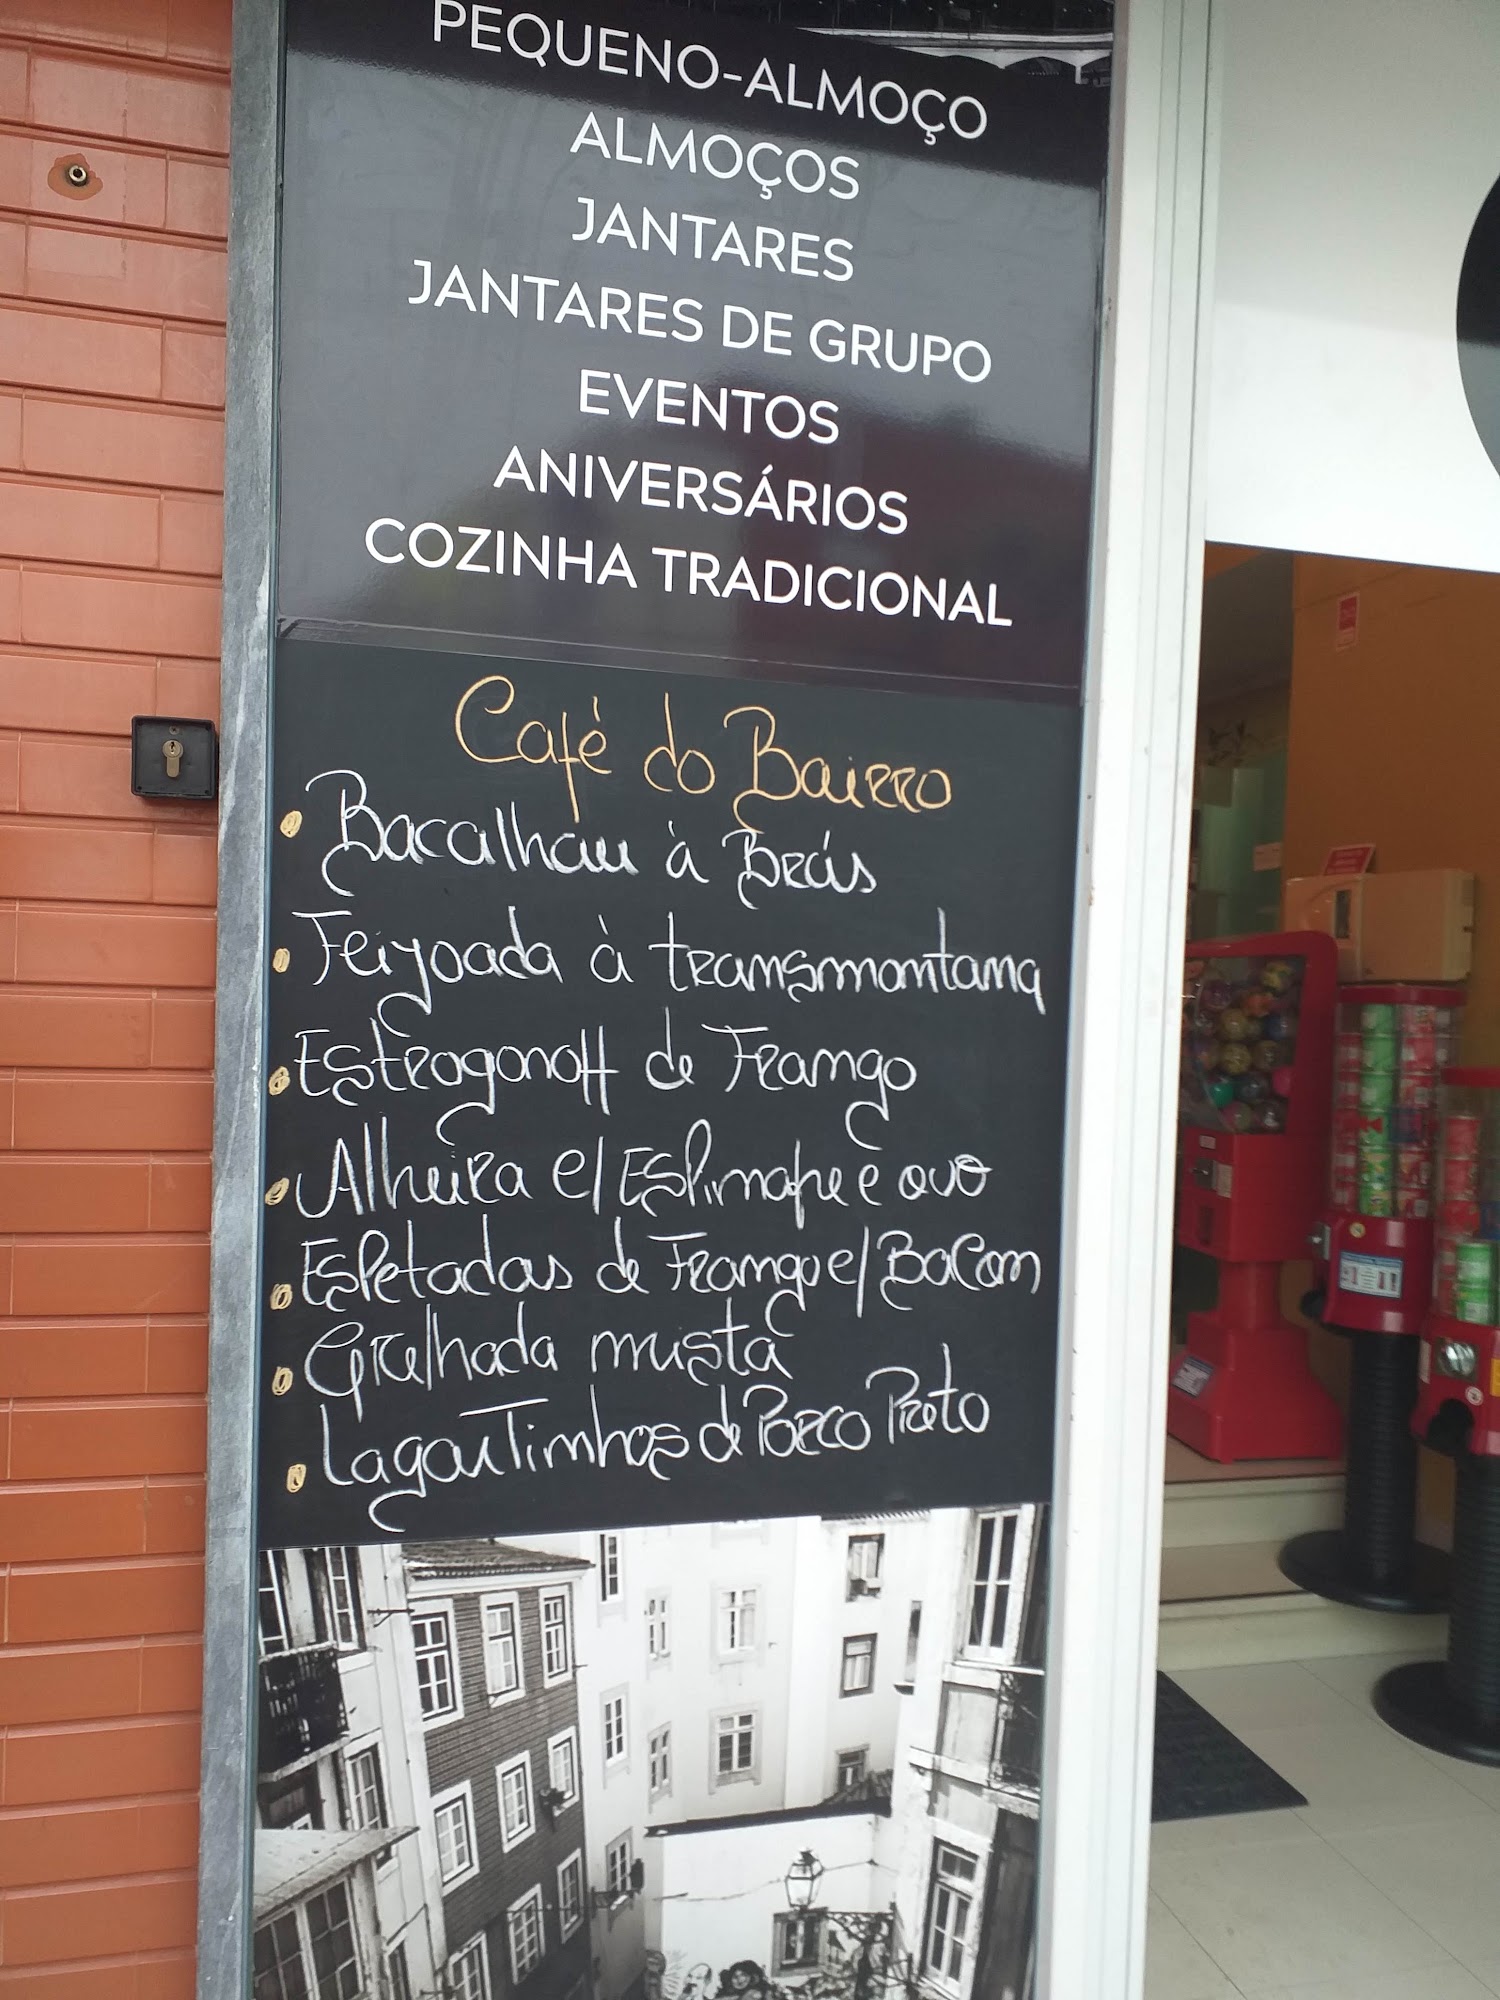 PEQUENO-ALMOÇO
ALMOÇOS
JANTARES
JANTARES DE GRUPO
EVENTOS
ANIVERSÁRIOS
COZINHA TRADICIONAL
Café do Bairro
Bacalhau à Brás
Feijoada à transmontana
Estrogonoff de Frango
Alheira c/ Espinafre e ovo
Espetadas de Frango c/ Bacon
Grelhada mista
Lagartinhos de Porco Preto